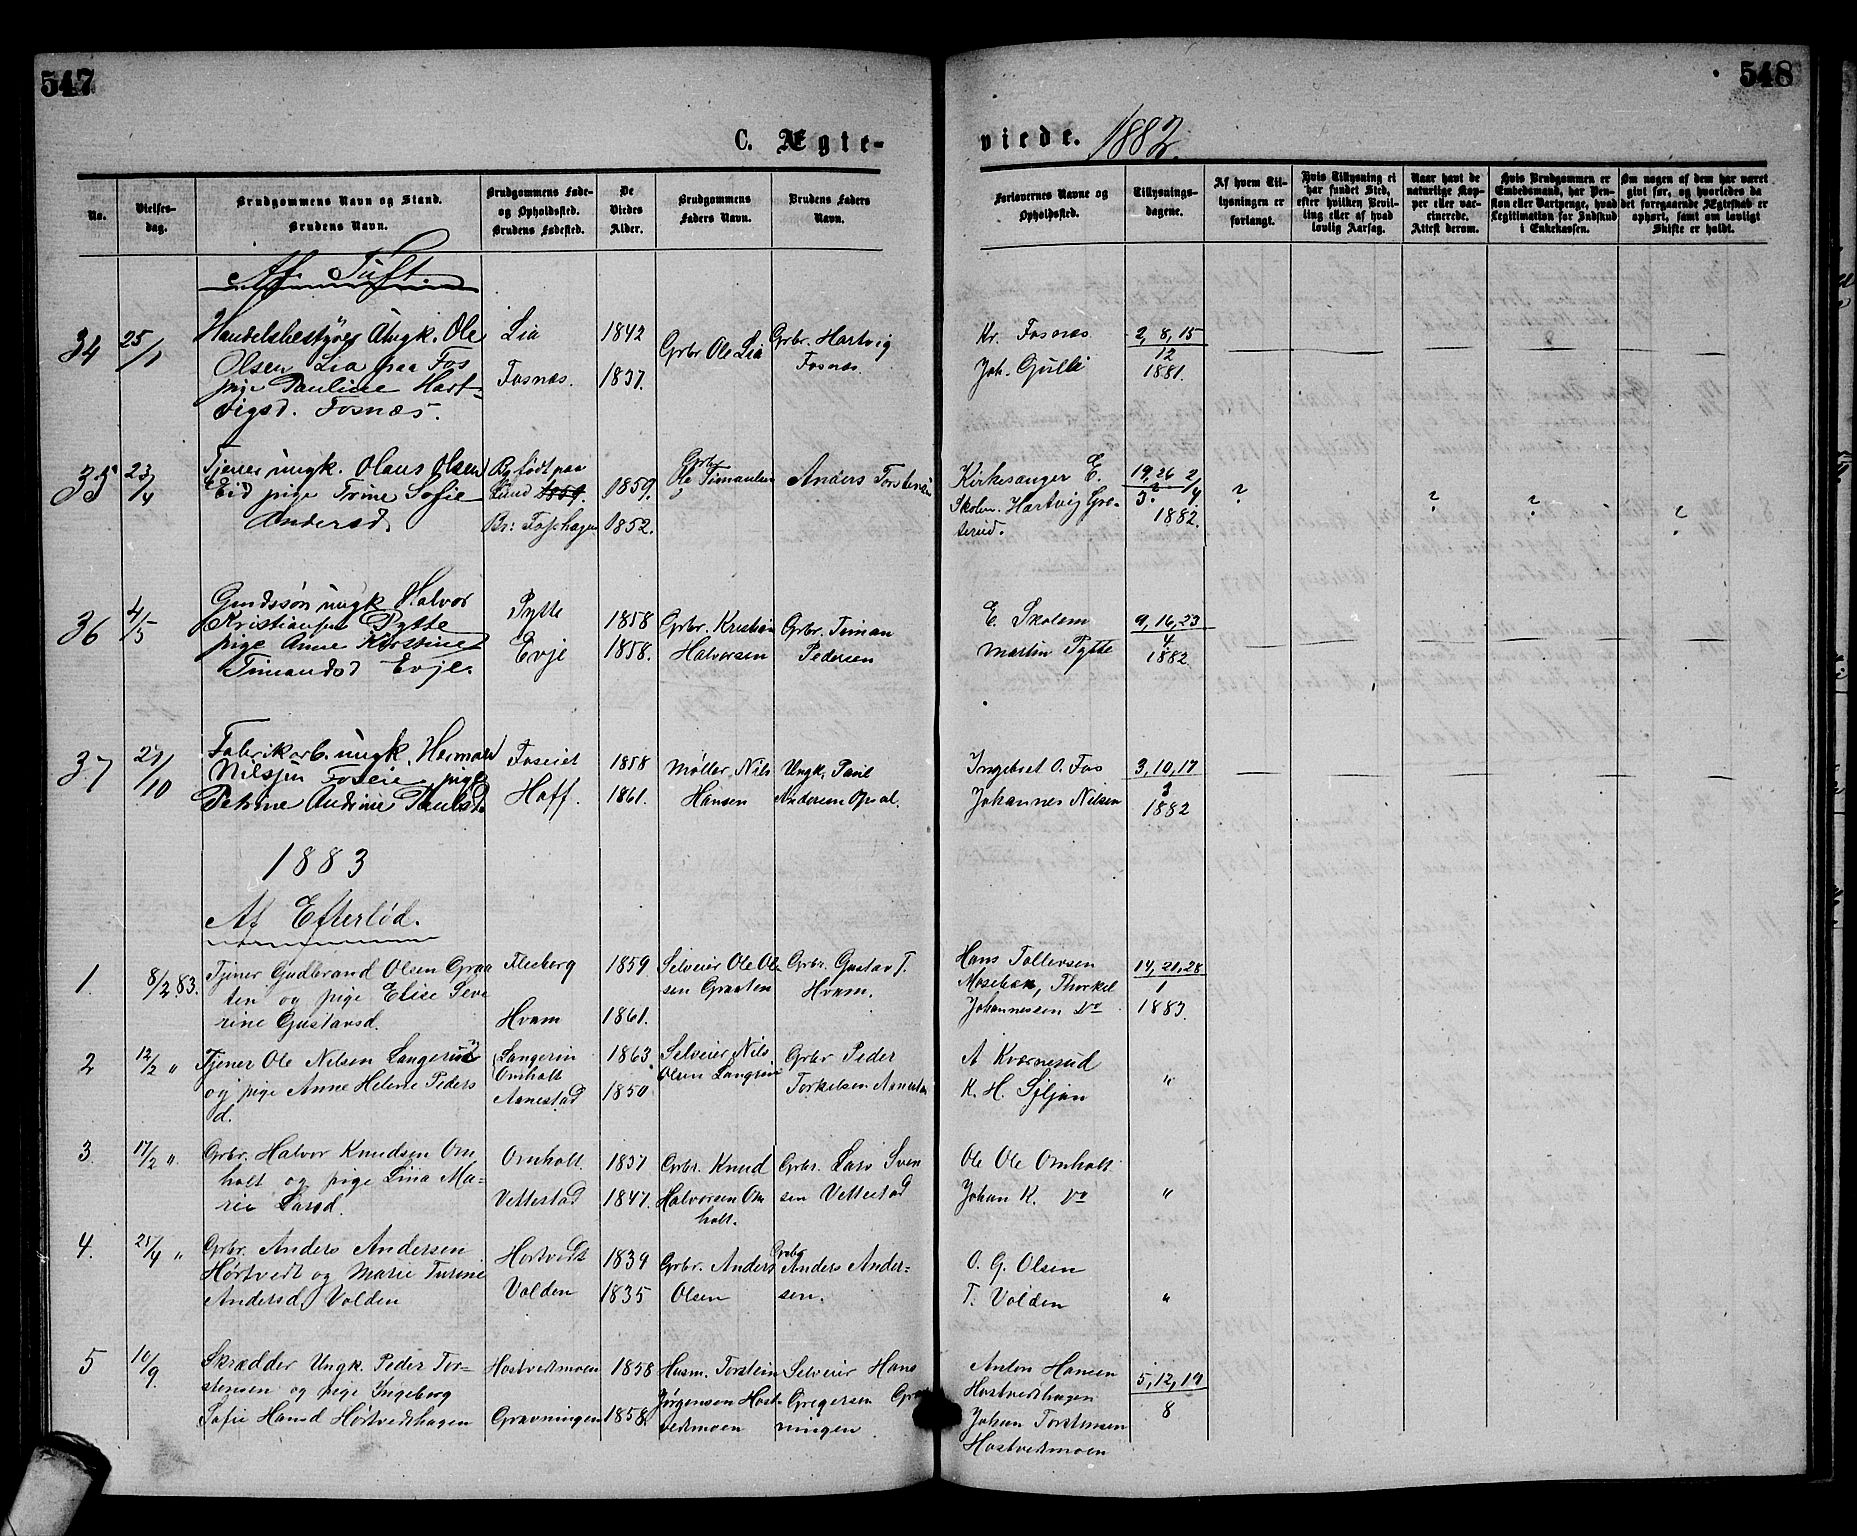 547
548
C. Ægte-
viede. 1882.
No.
Vielses-
dag.
Brudgommens Navn og Stand.
Brudens Navn.
Brudgommens Føde-
og Opholdsted.
Brudens Fødested.
De
Viedes
Alder.
Brudgommens
Faders Navn.
Brudens Faders
Navn.
Forlovernes Navne og
Opholdsted.
Tillysnings-
dagene.
Af hvem Til-
lysningen er
forlangt.
Hvis Tillysning ei
har fundet Sted,
efter hvilken Bevil-
ling eller af hvad
lovlig Aarsag.
Naar havt de
naturlige Kop-
per eller vac-
cinerede.
Attest derom.
Hvis Brudgommen er
Embedsmand, har Pen-
sion eller Vartpenge, hvad
Legitimation for Indskud
i Enkekassen.
Om nogen af dem har været
gift før, og hvorledes da
det foregaaende Ægteskab er
ophørt, samt om lovligt
Skifte er holdt.
Af Tuft.
34 25/1
Handelsbestyrer Ungk. Ole
Olsen Lia paa Fos
pige Pauline Hart-
vigsd. Fosnæs.
Lia
Fosnæs.
1842
1837.
Grbr Ole Lia
Grbr. Hartvig
Fosnæs.
Kr. Fosnæs
Joh. Gulli
2, 8, 15
12
1881.
35 23/4
Tjener ungk. Olaus Olsen
Eid pige Trine Sofie
Andersd.
Bg født paa
Lund 1859.
Br: Fosshagen
1859.
1852.
Grbr
Ole Timansen
Anders Torstensen
Kirkesanger E.
Skolm. Hartvig Gro-
terud.
19, 26 2/4
3.
1882.
?
?
?
?
36 4/5
Grndssøn ungk Halvor
Kristiansen Pytte
pige Anne Kirstine
Timandsd Evje.
Pytte
Evje
1858
1858.
Grbr. Kristian
Halvorsen
Grbr. Timan
Pedersen
E. Skolem
Martin Pytte
9, 16, 23
4
1882
37 27/10
Fabrikarb. ungk. Herman
Nilssen Foseie pige
Petrine Andrine Paulsd
Foseiet
Hoff.
1858
1861.
Møller, Nils
Hansen
Ungk. Paul
Andersen Opsal.
Ingebret O. Fos
Johannes Nilsen
3, 10, 17
9
1882
1883
Af Efterlød.
1. 8/2 83.
Tjener Gudbrand Olsen Graa
ten og pige Elise Seve
rine Gustavsd.
Flesberg
Hvam
1859
1861.
Selveier Ole Ol-
sen Graaten
Grbr. Gustav T.
Hvam.
Hans Tollevsen
Moseboen, Thorkel
Johannessen Do
14, 21, 28
1
1883.
2 12/2 "
Tjener Ole Nilsen Langerud
og pige Anne Helene Peders
d.
Langerin
Omholt
Aanestad
1863
1850
Selveier Nils
Olsen Langrin
Grbr Peder
Torkelsen Aanestad
A Kværnerud
K. H. Siljan
"
3. 17/2 "
Grbr. Halvor Knudsen Om
holt og pige Lina Ma-
rie Larsd.
Omholt
Vettestad
1837
1847.
Grbr. Knud
Halvorsen Om
holt.
Grbr. Lars Sven
sen Vettestad
Ole Ole Omholt
Johan K. Do
"
4. 25/4 "
Grbr. Anders Andersen
Hørtvedt og Marie Turine
Andersd, Volden
Hørtvedt
Volden
1839
1835
Grbr. Anders
Olsen
Grbr
Anders Ander-
sen.
O. G. Olsen
T. Volden
"
5 16/9
Skrædder Ungk. Peder Tor-
stensen og pige Ingeborg
Sofie Hansd Hørtvedthagen
Hostvedtmoen
Gravningen
1858
1858.
Husm. Torstein
Jørgensen Host-
vedmoen
Selveier Hans
Gregersen Grav
ningen
Anton Hansen
Hostvedthagen
Johan Torstensen
Hostvedtmoen
5, 12, 19
8